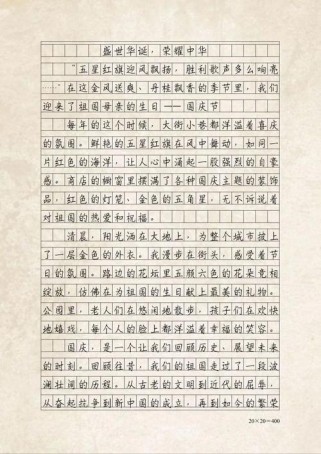 盛世华诞，荣耀中华
“五星红旗迎风飘扬，胜利歌声多么响亮
……”在这金风送爽、丹桂飘香的季节里，我们
迎来了祖国母亲的生日——国庆节
每年的这个时候，大街小巷都洋溢着喜庆
的氛围。鲜艳的五星红旗在风中舞动，如同一
片红色的海洋，让人心中涌起一股强烈的自豪
感。商店的橱窗里摆满了各种国庆主题的装饰
品，红色的灯笼、金色的五角星，无不诉说着
对祖国的热爱和祝福。
清晨，阳光洒在大地上，为整个城市披上
了一层金色的外衣。我漫步在街头，感受着节
日的氛围。路边的花坛里五颜六色的花朵竞相
绽放，仿佛在为祖国的生日献上最美的礼物。
公园里，老人们在悠闲地散步，孩子们在欢快
地嬉戏，每个人的脸上都洋溢着幸福的笑容。
国庆，是一个让我们回顾历史、展望未来
的时刻。回顾往昔，我们的祖国走过了一段波
澜壮阔的历程。从古老的文明到近代的屈辱，
从奋起抗争到新中国的成立，再到如今的繁荣
20×20=400